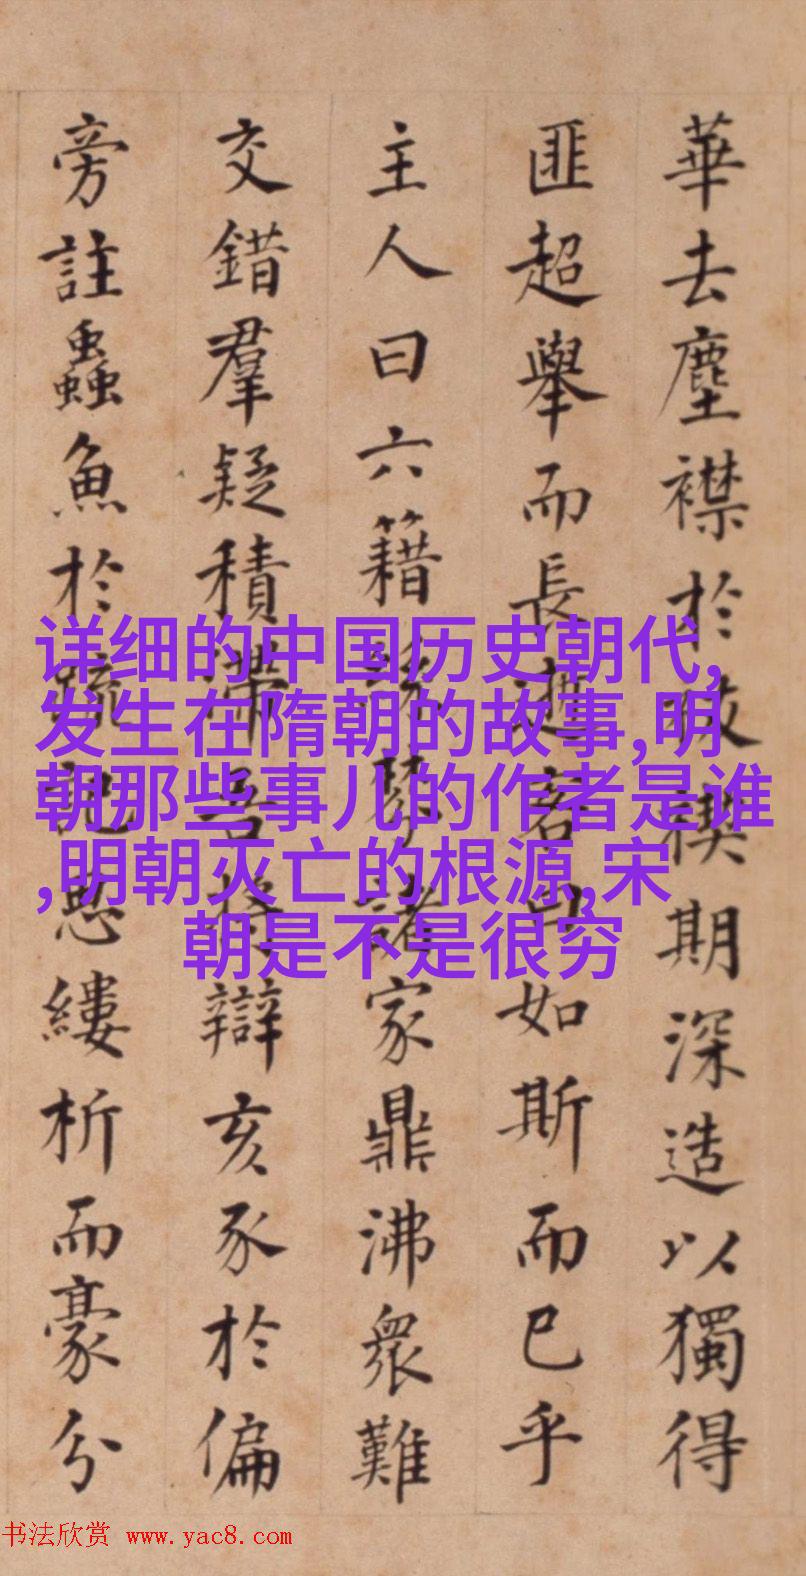 華去塵襟於禊期深造以獨得
匪超舉而長進曰如斯而已乎
主人曰六籍諸家鼎沸衆難
交錯羣疑積滯吾將辯亥豕於偏
旁註蟲魚於疏記悉縷析而豪分
详细的中国历史朝代,
发生在隋朝的故事,明
朝那些事儿的作者是谁
,明朝灭亡的根源,宋
朝是不是很穷
书法欣赏 www.yac8.com